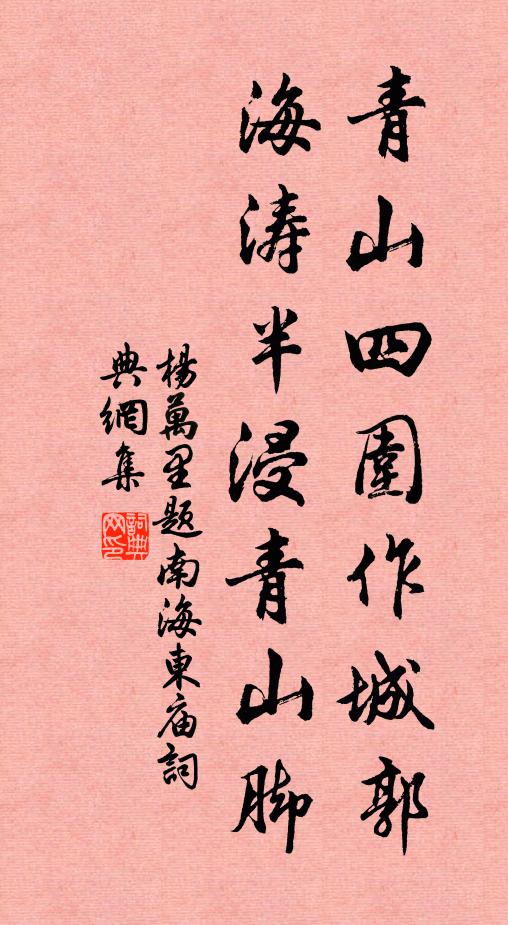 青山四圍作城郭
海涛半浸青山脚
楊萬里题南海東庙詞
典網集
詞典网印